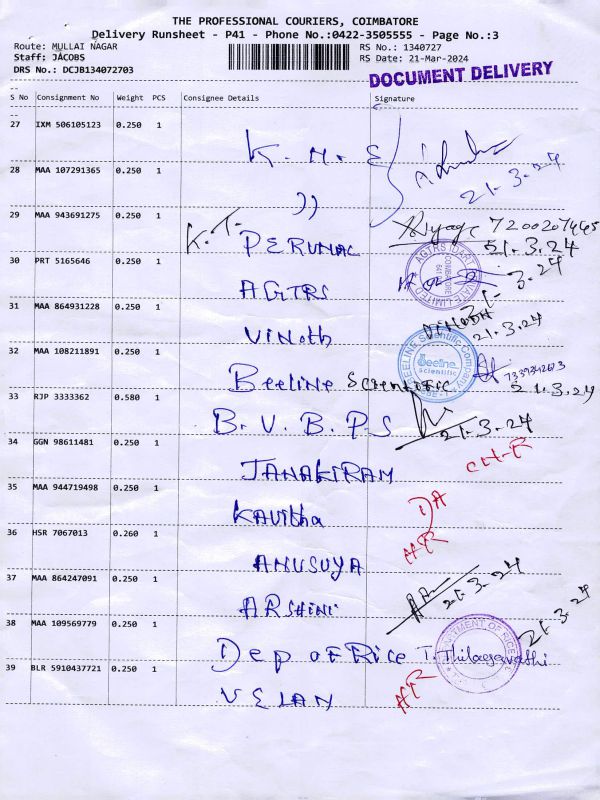 THE PROFESSIONAL COURIERS, COIMBATORE
Delivery Runsheet - P41 - Phone No.:0422-3505555 - Page No.:3
Route: MULLAI NAGAR RS No.: 1340727
Staff: JACOBS RS Date: 21-Mar-2024
DRS No.: DCJB134072703
DOCUMENT DELIVERY
S No Consignment No Weight PCS Consignee Details Signature
27 IXM 506105123 0.250 1 K. N. E
21.3.24
28 MAA 107291365 0.250 1 ))
29 MAA 943691275 0.250 1 K.T. PERUMAL 7200207465
21.3.24
30 PRT 5165646 0.250 1 AGTRS
21.3.24
31 MAA 864931228 0.250 1 VINoth VINOTH
21.3.24
32 MAA 108211891 0.250 1 Beeline Scientific
Beeline Scientific
21.3.24
33 RJP 3333362 0.580 1 B. V. B. P.S
21.3.24
34 GGN 98611481 0.250 1 JANAKIRAM
35 MAA 944719498 0.250 1 Kavitha DA
36 HSR 7067013 0.260 1 ANUSUYA
37 MAA 864247091 0.250 1 ARSHINI
21.3.24
38 MAA 109569779 0.250 1 Dep of Rice T. Thilagavathi
21.3.24
39 BLR 5910437721 0.250 1 VELAN